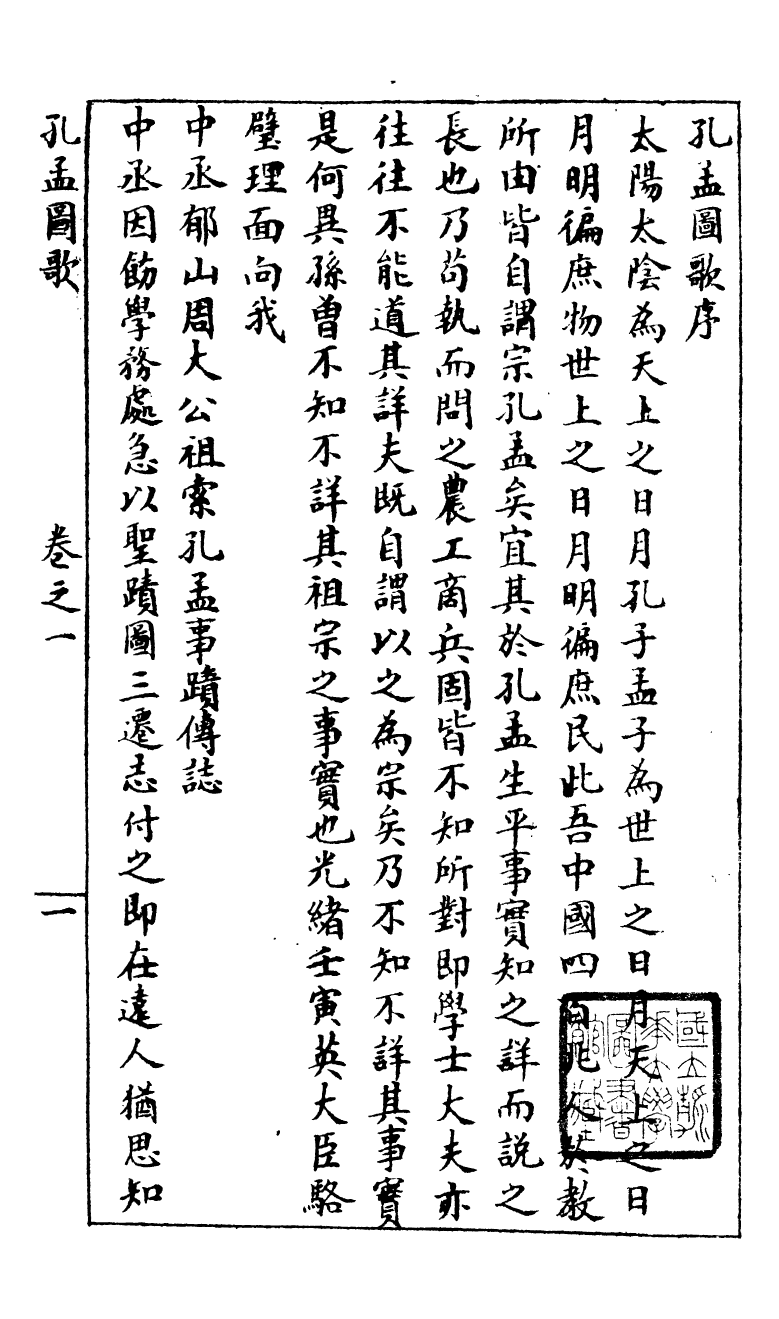 孔孟圖歌序
太陽太陰為天上之日月孔子孟子為世上之日月天上之日
月明徧庶物世上之日月明徧庶民此吾中國四百兆人於教
所由皆自謂宗孔孟矣宜其於孔孟生平事實知之詳而說之
長也乃苟執而問之農工商兵固皆不知所對即學士大夫亦
往往不能道其詳夫既自謂以之為宗矣乃不知不詳其事實
是何異孫曾不知不詳其祖宗之事實也光緒壬寅英大臣駱
璧理面向我
中丞郁山周大公祖索孔孟事蹟傳誌
中丞因飭學務處急以聖蹟圖三遷志付之即在遠人猶思知
孔孟圖歌
卷之一
一